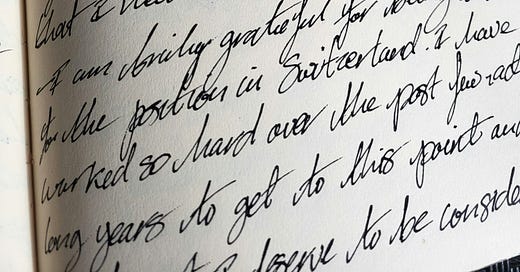 that I
I am truly grateful for
for the position in Switzerland. I have
worked so hard over the past few
long years to get to this point
I deserve to be conside